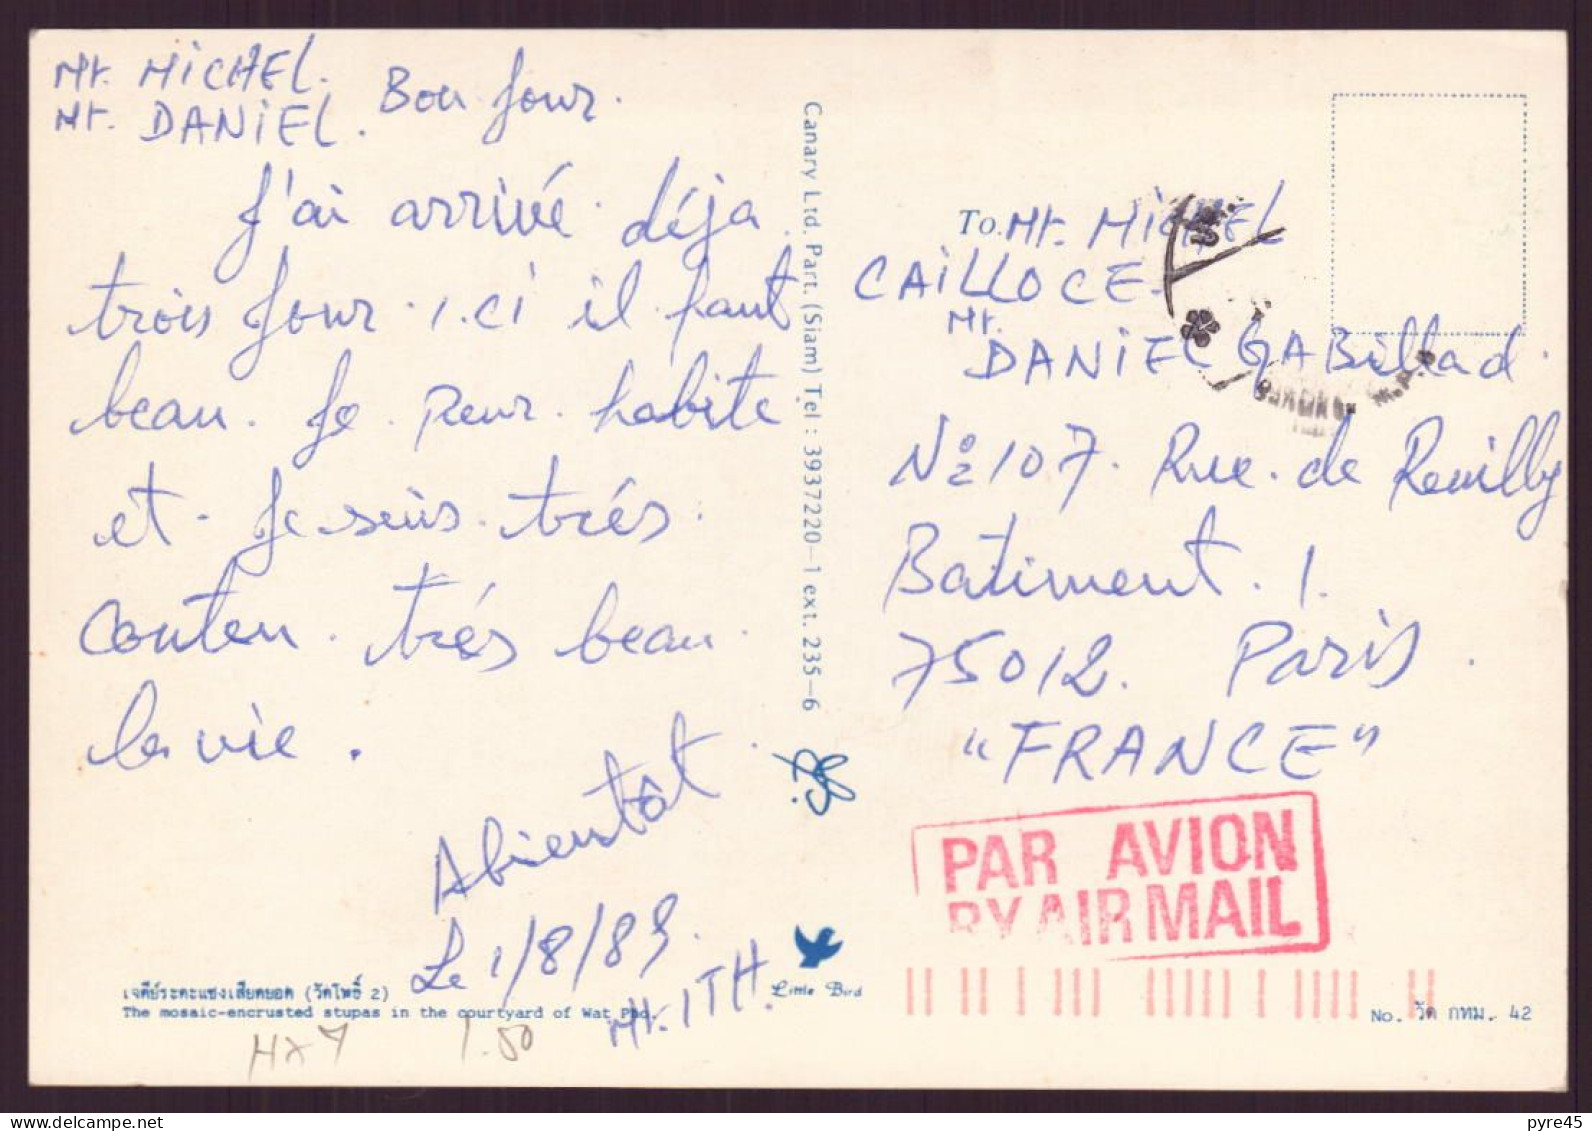 Mr. MiCHEL.
Mr. DANiEL. Bon Jour.
J'ai arrivé déja
trois Jour. i.ci il faut
beau. Je peur habite
et Je suis très
Conten. très beau
la vie.
Abientôt
Le 1/8/89.
Mr. ITH.
เจดีย์ระคะแซงเสียดยอด (วัดโพธิ์ 2)
The mosaic-encrusted stupas in the courtyard of Wat Pho.
HX7 1.50
Canary Ltd. Part. (Siam) Tel : 3937220-1 ext. 235-6
Little Bird
To. Mr. MiCHEL
CAiLLOCE.
Mr.
DANiEL GABillad.
No 107. Rue. de Reuilly
Batiment. 1.
75012. Paris.
"FRANCE"
PAR AVION
BY AIR MAIL
No. วัด กทม. 42
delcampe.net
pyre45